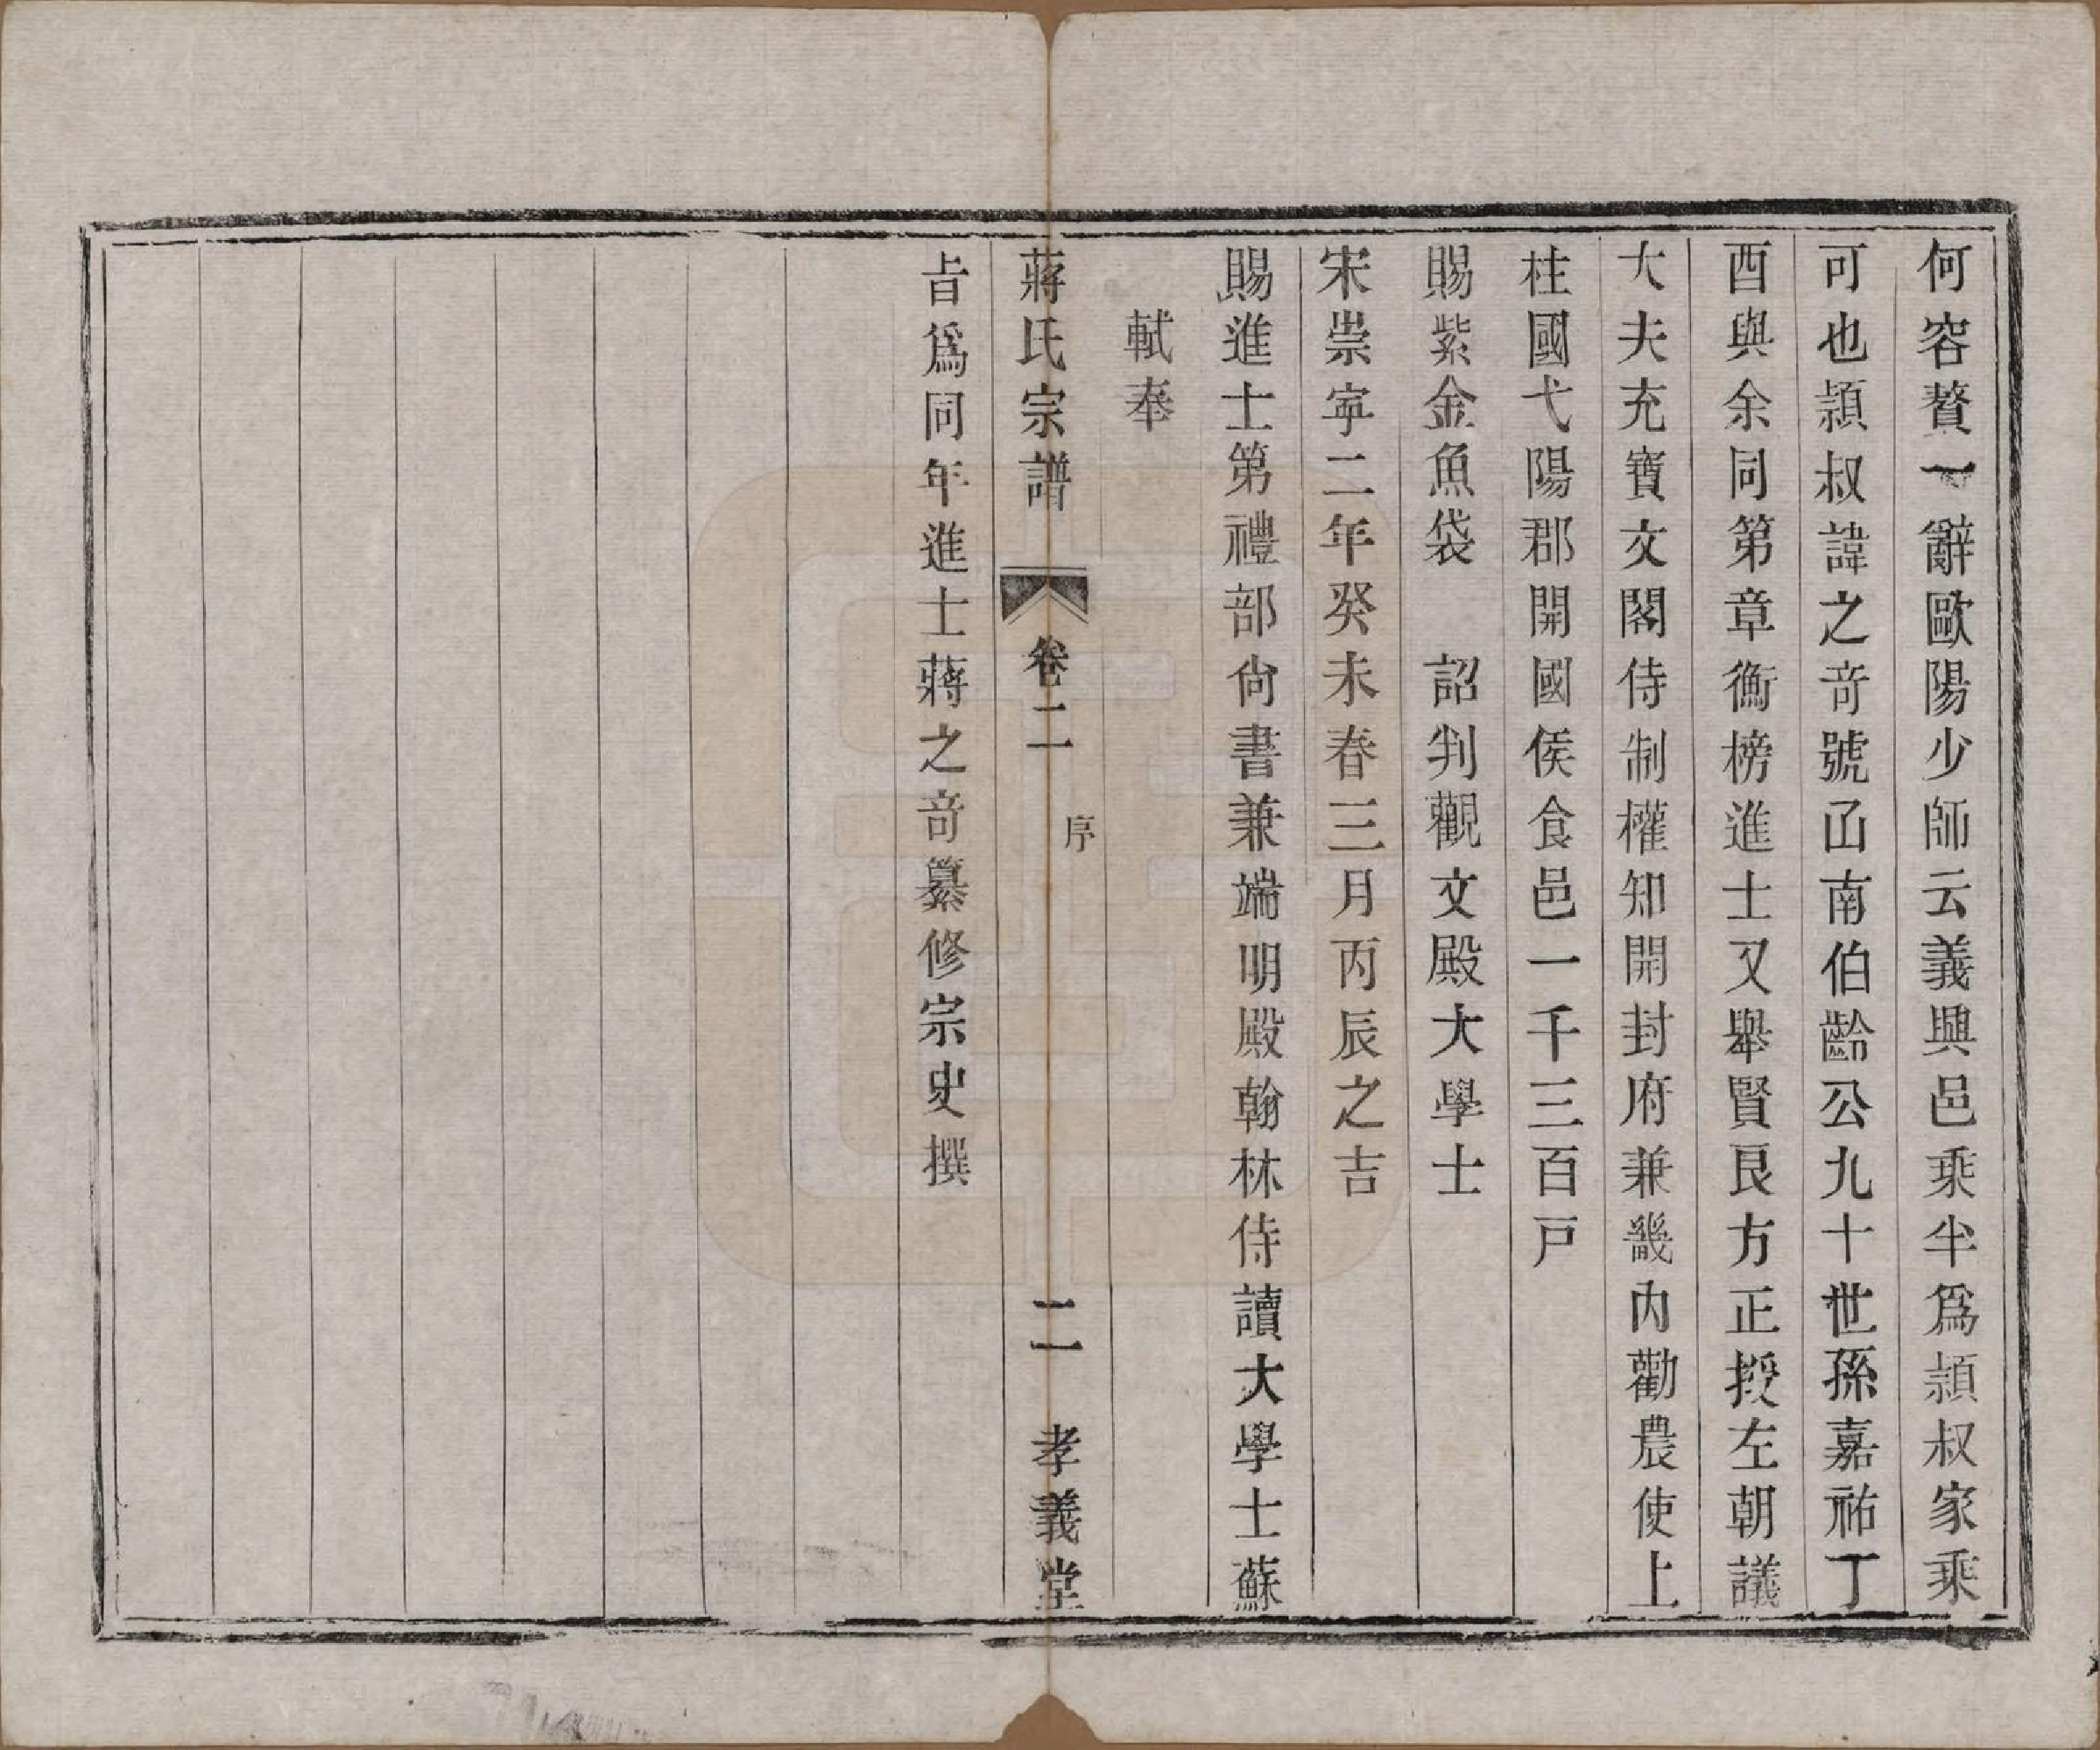 何容贅一辭歐陽少師云義興邑乘半爲頴叔家乘
可也頴叔諱之竒號凾南伯齡公九十世孫嘉祐丁
酉與余同第章衡榜進士又舉賢良方正授左朝議
大夫充寶文閣侍制權知開封府兼畿內勸農使上
柱國弋陽郡開國侯食邑一千三百戸
賜紫金魚袋　詔判觀文殿大學士
宋崇寕二年癸未春三月丙辰之吉
賜進士第禮部尙書兼端明殿翰林侍讀大學士蘇
軾奉
蔣氏宗譜　卷二　序　二　孝義堂
㫖爲同年進士蔣之竒纂修宗史撰